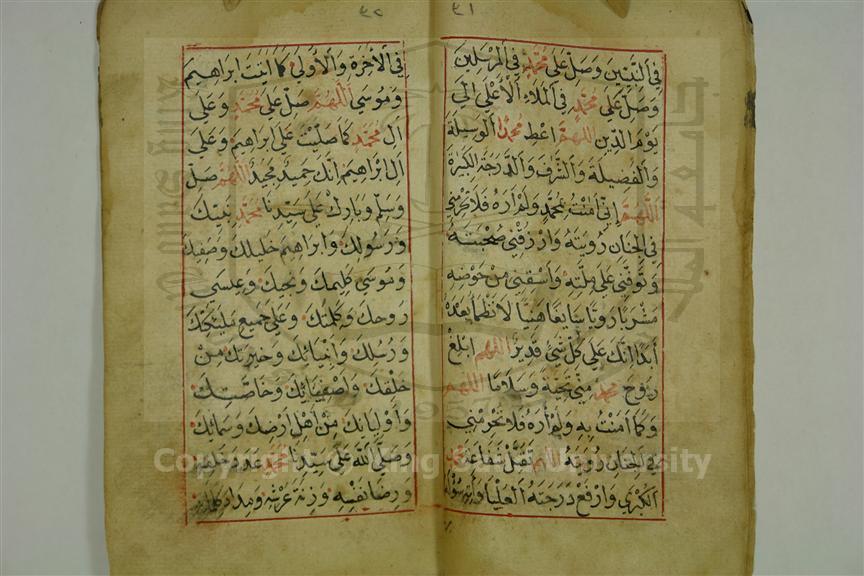 ٣١
في النبيين وصل على محمد في المرسلين
وصل على محمد في الملاء الأعلى الى
يوم الدين اللهم اعط محمدا الوسيلة
والفضيلة والشرف والدرجة الكبيرة
اللهم إني امنت بمحمد ولم اره فلا تحرمني
في الجنان رويته وارزقني صحبته
وتوفني على ملته واسقني من حوضه
مشربا رويا سايغا هنيا لا نظما بعده
أبدا انك على كل شئ قدير اللهم ابلغ
روح محمد مني تحية وسلاما اللهم
وكما امنت به ولم اره فلا تحرمني
في الجنان رويته اللهم تقبل شفاعة محمد
الكبرى وارفع درجته العليا وآته سؤله
٣٢
في الأخرة والأولى كما اتيت ابراهيم
وموسى اللهم صل على محمد وعلى
ال محمد كما صليت على ابراهيم وعلى
ال ابراهيم انك حميد مجيد اللهم صل
وسلم وبارك على سيدنا محمد نبيك
ورسولك وابراهيم خليلك وصفيك
وموسى كليمك ونجيك وعيسى
روحك وكلمتك وعلى جميع مليكتك
ورسلك وانبيائك وخيرتك من
خلقك واصفيائك وخاصتك
واوليائك من اهل ارضك وسمائك
وصلى الله على سيدنا محمد عدد خلقه
ورضا نفسه وزنة عرشه ومداد كلماته
Copyright © King Saud University